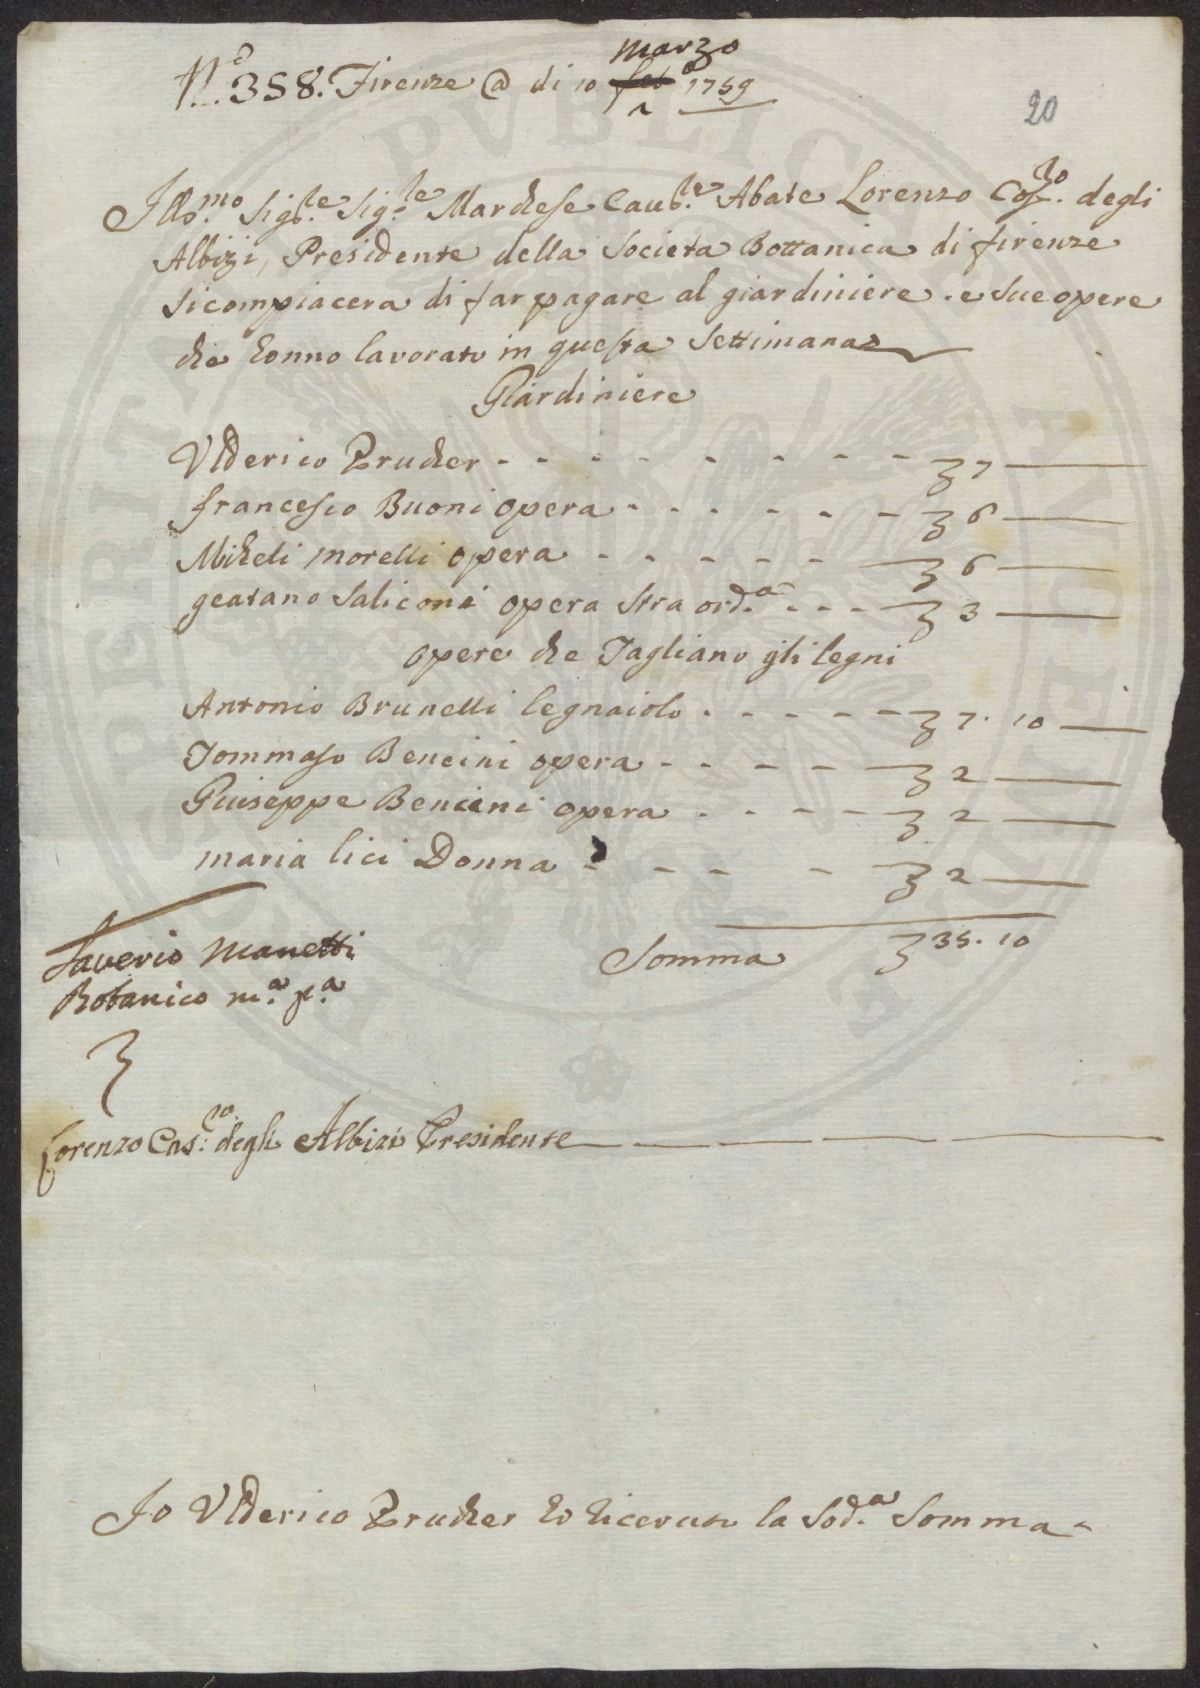 N.o 358. Firenze @ di 10 feb 1759
marzo
20
Illo.mo Sig.re Sig.re Marchese Caul.re Abate Lorenzo Cos.mo degli
Albizi, Presidente della Societa Bottanica di firenze
Si compiacera di far pagare al giardiniere e sue opere
che honno lavorato in questa Settimana
Giardiniere
Ulderico Prucher - - - - - - - - ʒ 7
francesco Buoni opera - - - - - ʒ 6
Micheli morelli opera - - - - - ʒ 6
geatano Saliconi opera Straord.a - - - ʒ 3
opere che Tagliano gli legni
Antonio Brunelli legnaiolo - - - - - ʒ 7. 10
Tommaso Bencini opera - - - - ʒ 2
Guiseppe Bencini opera - - - - ʒ 2
maria lici Donna - - - - ʒ 2
Somma ʒ 35. 10
Saverio Manetti
Botanico m.o p.a
Lorenzo Cas.: degli Albizi Presidente
Io Ulderico Prucher ho riceruto la Sod.a Somma